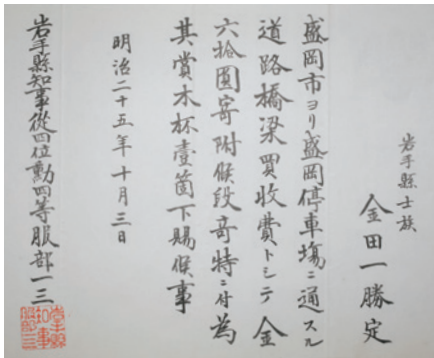 岩手縣士族
金田一勝定
盛岡市ヨリ盛岡停車場ニ通スル
道路橋梁買收費トシテ金
六拾圓寄附候段奇特ニ付為
其賞木杯壹箇下賜候事
明治二十五年十月三日
岩手縣知事從四位勳四等服部一三